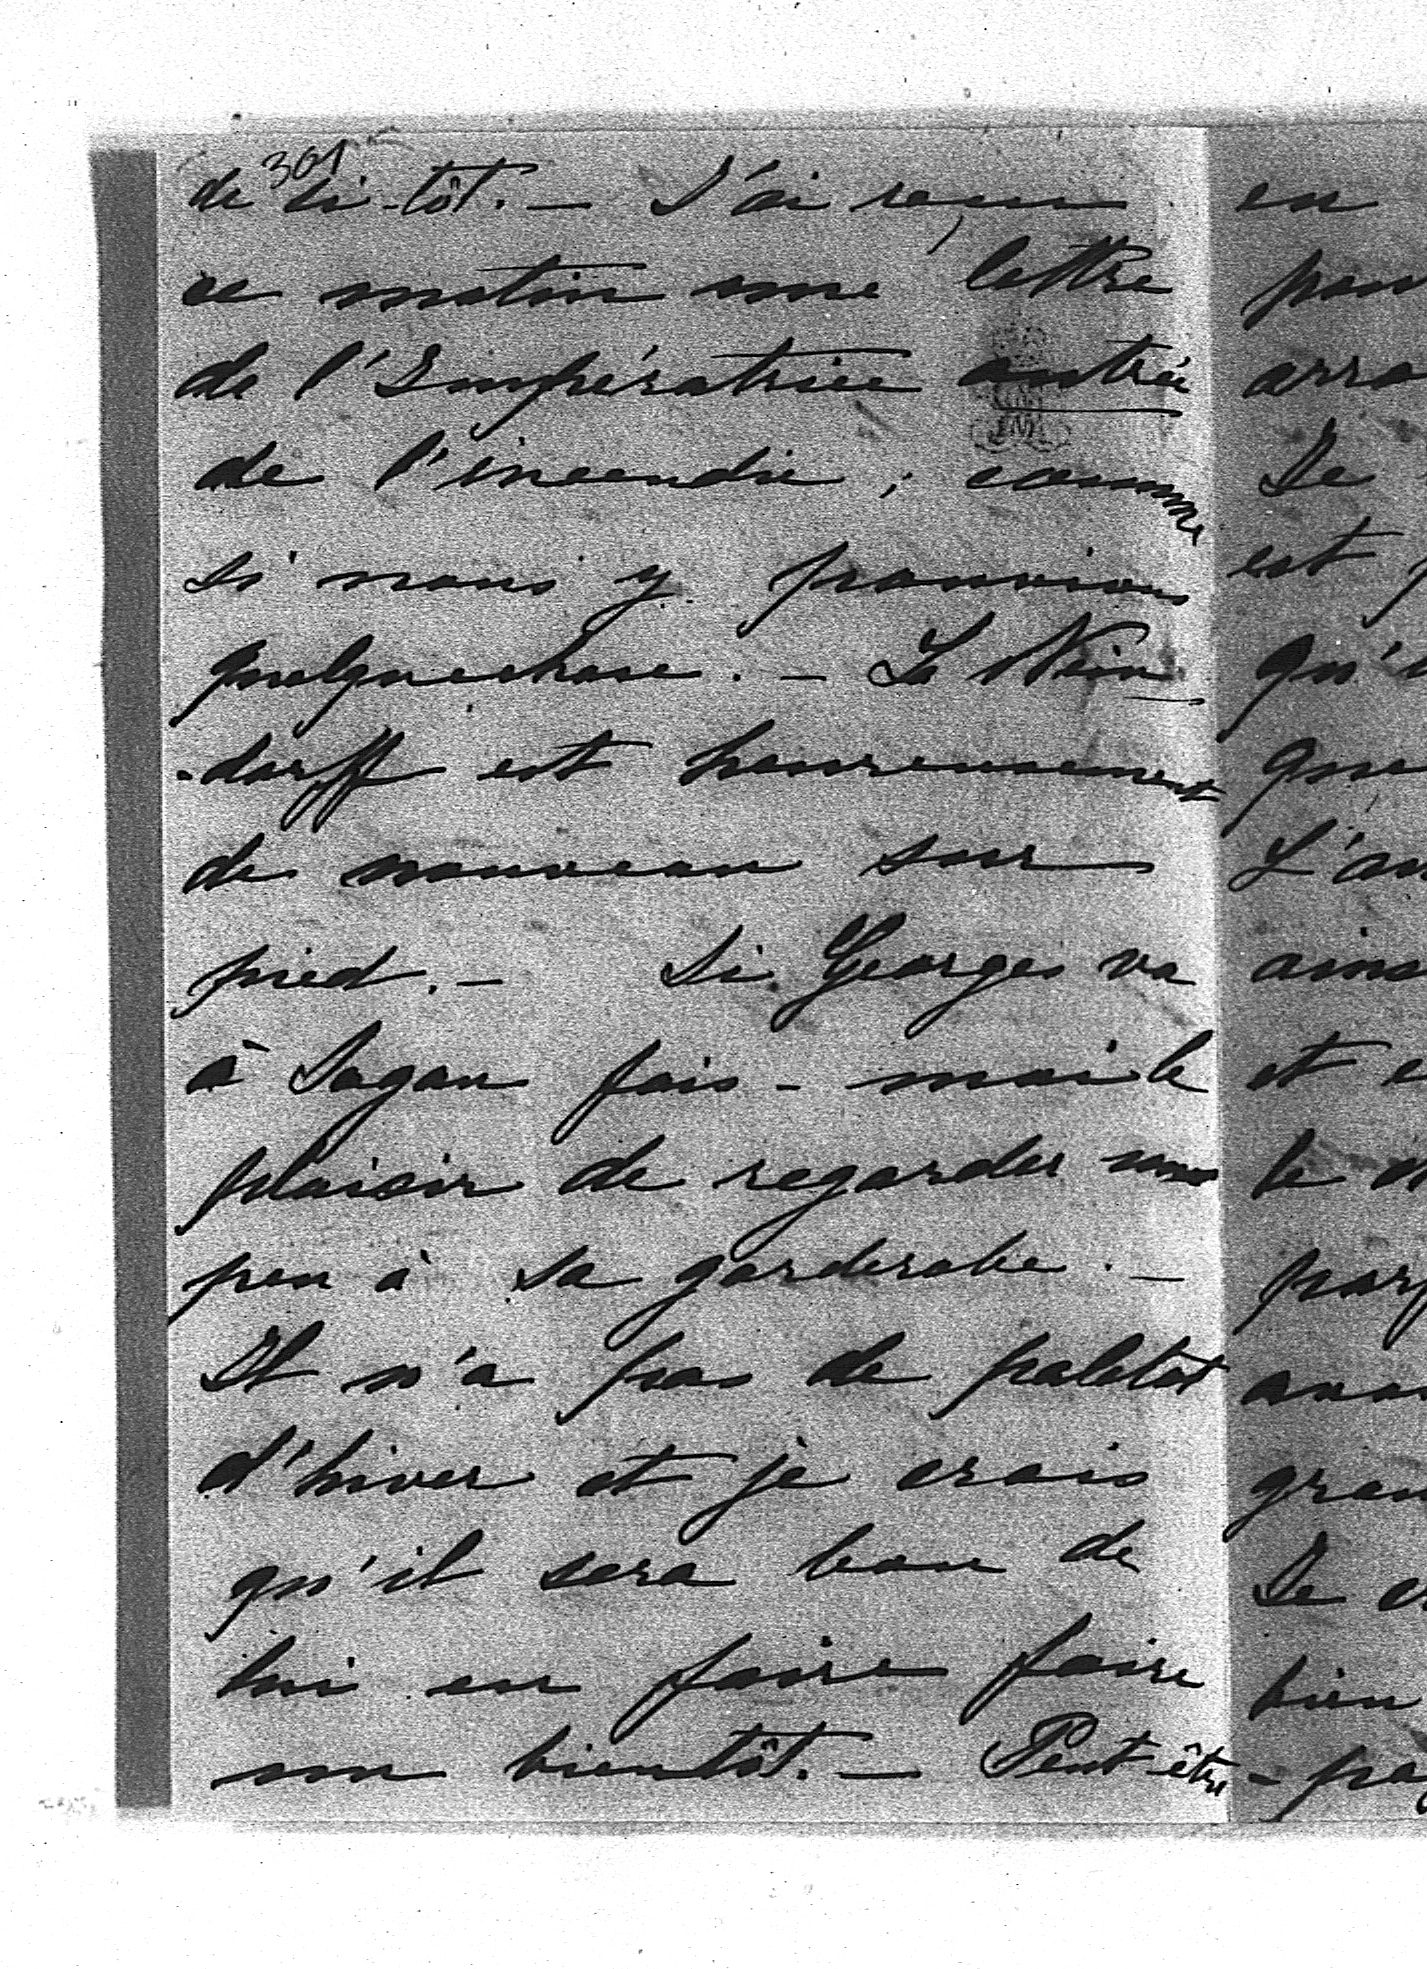 301
de si-tôt. — J'ai reçu
ce matin une lettre
de l'Impératrice outrée
de l'incendie, comme
si nous y pouvions
quelquechose. — La Stein
-dorff est heureusement
de nouveau sur
pied. — Si Georges va
à Sagan fais-moi le
plaisir de regarder un
peu à sa garderobe. —
Il n'a pas de paletot
d'hiver et je crois
qu'il sera bon de
lui en faire faire
un bientôt. — Peut-être
en
arra
Je
est
qu'
que
L'au
ains
et
le
avo
gran
Je
bien